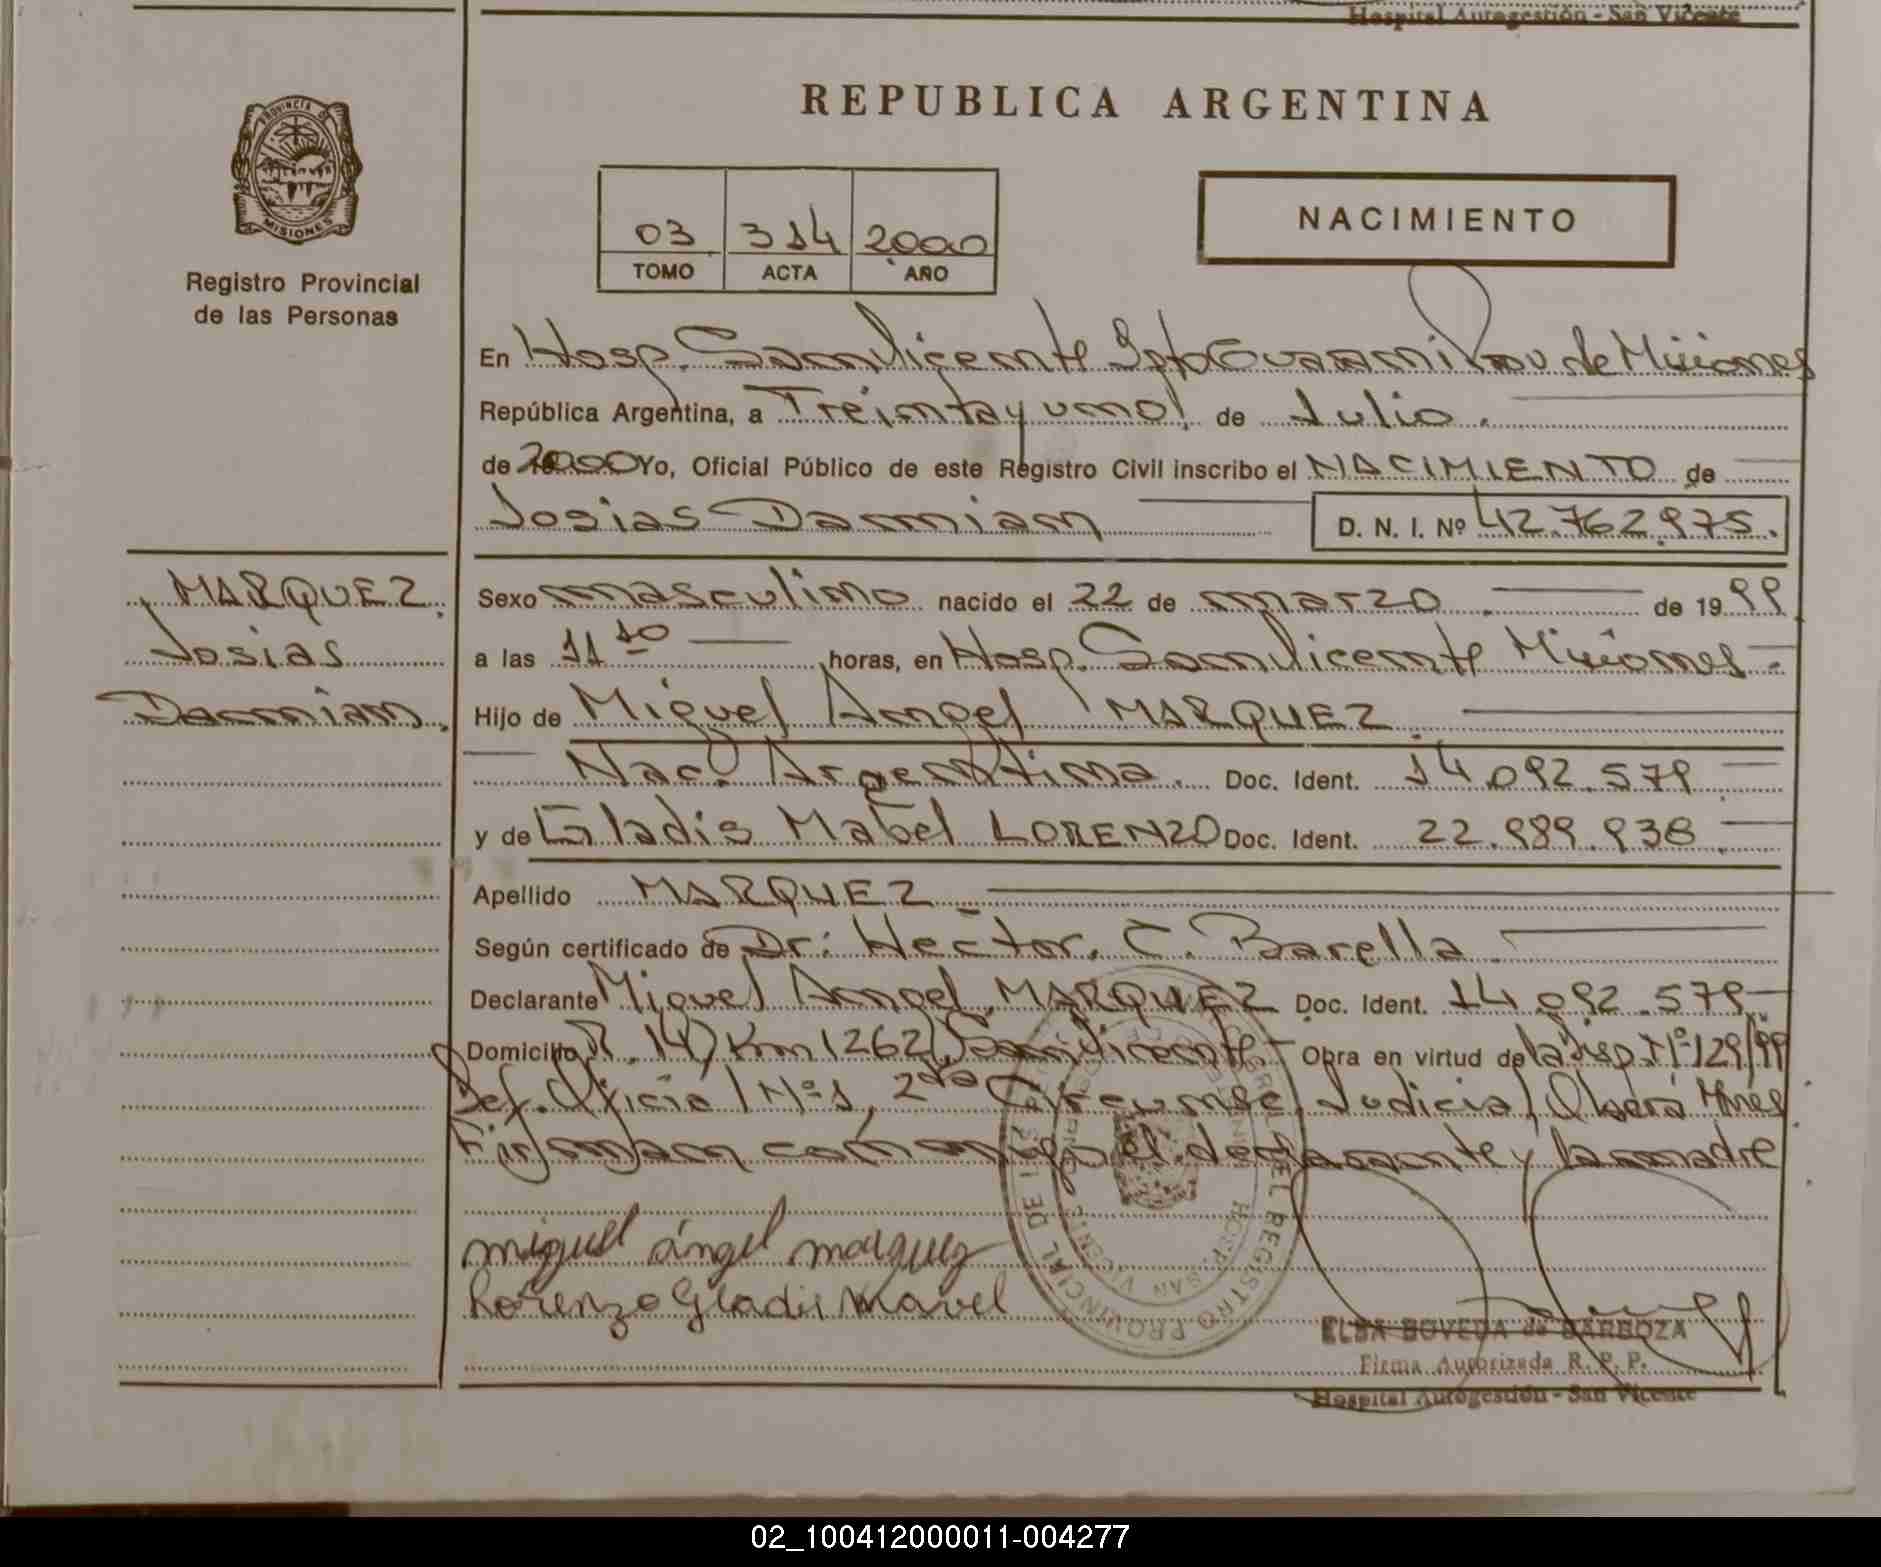 Hospital Autogestión - San Vicente
PROVINCIA DE
MISIONES
Registro Provincial
de las Personas
REPUBLICA ARGENTINA
03 314 2000
TOMO ACTA AÑO
NACIMIENTO
En Hosp. San Vicente Dpto Guarani Prov de Misiones
República Argentina, a Treinta y uno de Julio.
de 2000 Yo, Oficial Público de este Registro Civil inscribo el NACIMIENTO de
Josias Damian D. N. I. Nº 42.762.975.
MARQUEZ.
Josias
Damian.
Sexo masculino nacido el 22 de marzo. de 1999
a las 11 10 horas, en Hosp. San Vicente Misiones -
Hijo de Miguel Angel MARQUEZ.
Nac. Argentina. Doc. Ident. 14.092.579.
y de Gladis Mabel LORENZO Doc. Ident. 22.989.938.
Apellido MARQUEZ
Según certificado de Dr: Hector. C. Barella.
Declarante Miguel Angel MARQUEZ Doc. Ident. 14.092.579
Domicilio R. 14) Km 1262) San Vicente - Obra en virtud de la Disp. Nº 129/99
Def. Oficial Nº 1, 2da Circunsc. Judicial Oberá Mnes
Firman conmigo el declarante y la madre
miguel ángel marquez
Lorenzo Gladis Mavel
REGISTRO PROVINCIAL DE
HOSP. SAN VICENTE
ELBA BOVEDA de BARBOZA
Firma Autorizada R. P. P.
Hospital Autogestión - San Vicente
02_100412000011-004277